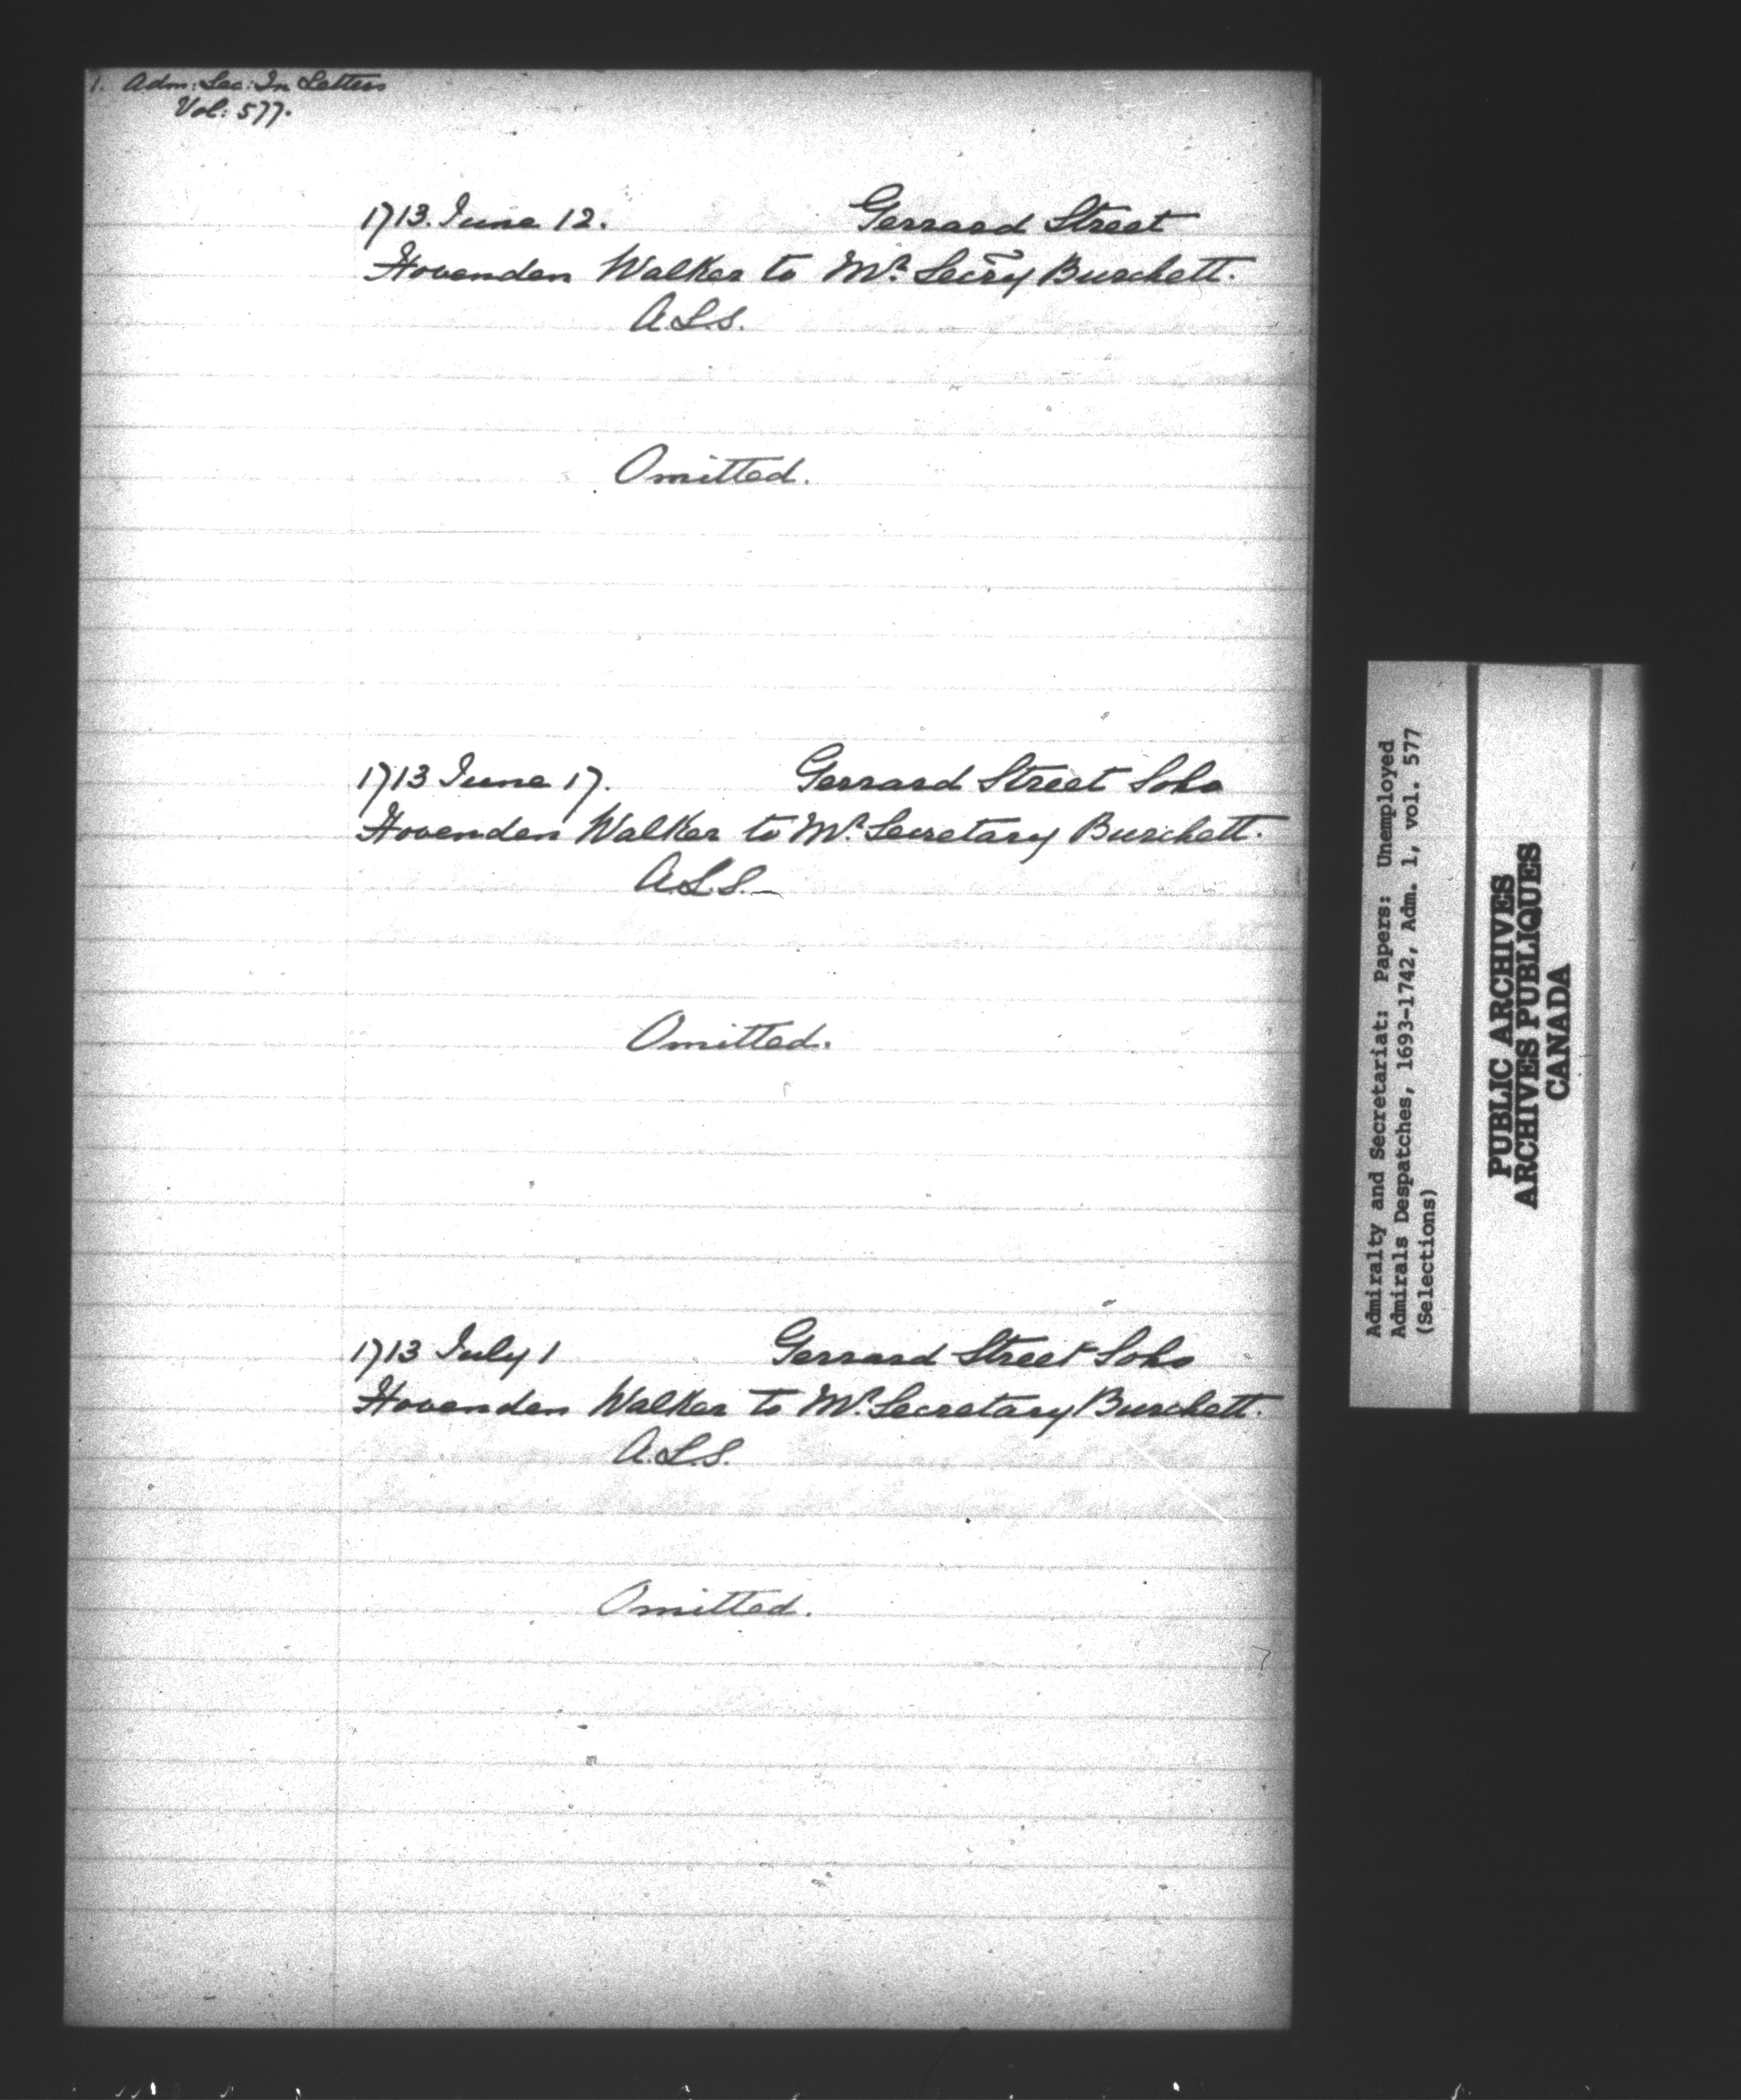 1. Adm: Sec: In Letters
Vol: 577.
1713. June 12. Gerrard Street
Hovenden Walker to Mr. Secry Burchett.
A.L.S.
Omitted.
1713 June 17. Gerrard Street Soho
Hovenden Walker to Mr. Secretary Burchett.
A.L.S.—
Omitted.
1713 July 1 Gerrard Street Soho
Hovenden Walker to Mr. Secretary Burchett.
A.L.S.
Omitted.
Admiralty and Secretariat: Papers: Unemployed
Admirals Despatches, 1693-1742, Adm. 1, vol. 577
(Selections)
PUBLIC ARCHIVES
ARCHIVES PUBLIQUES
CANADA